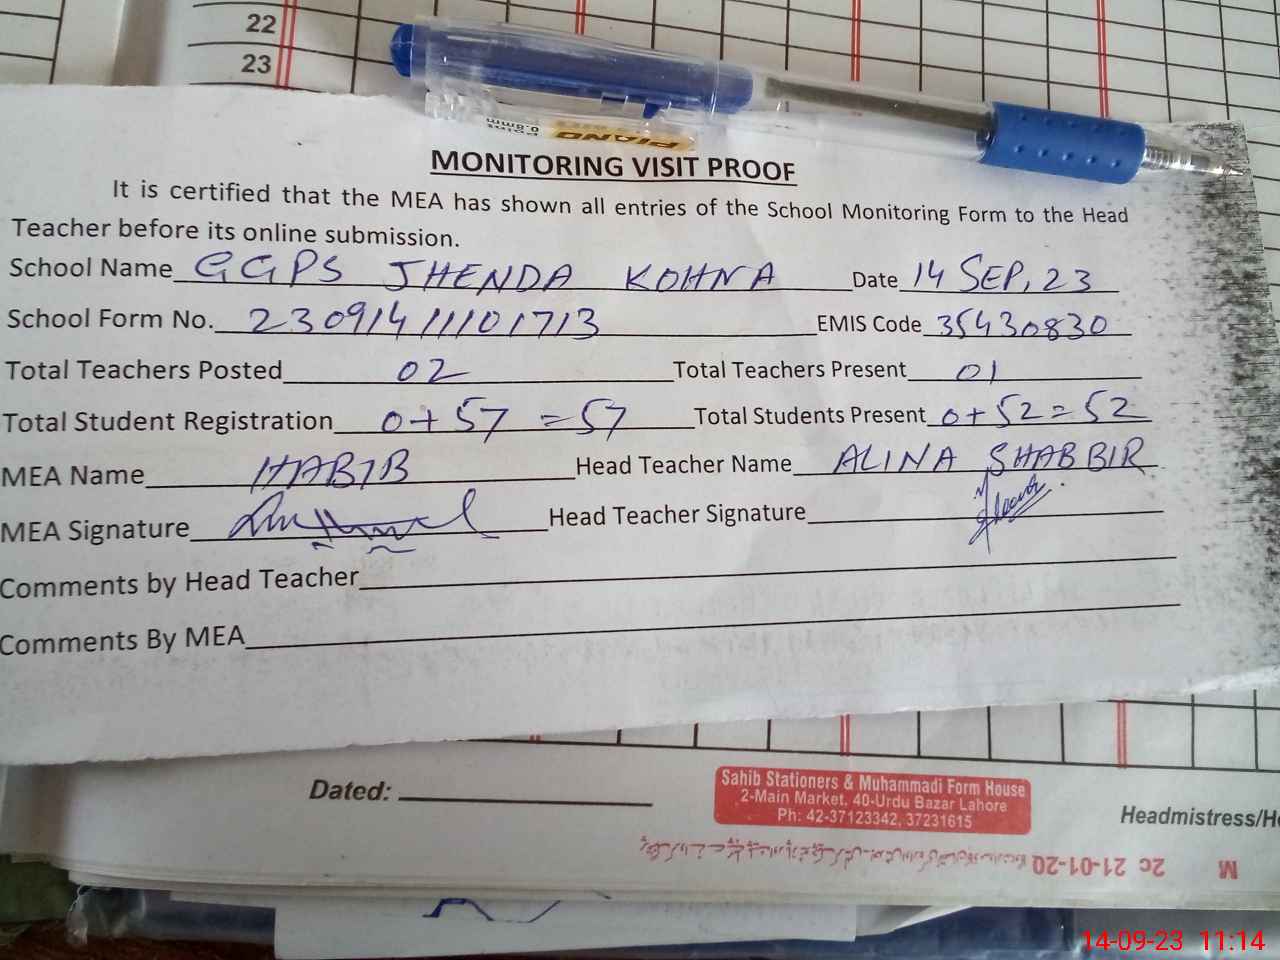 22
23
PIANO
Points
0.8mm
MONITORING VISIT PROOF
It is certified that the MEA has shown all entries of the School Monitoring Form to the Head
Teacher before its online submission.
School Name GGPS JHENDA KOHNA Date 14 SEP, 23
School Form No. 23091411101713 EMIS Code 35430830
Total Teachers Posted 02 Total Teachers Present 01
Total Student Registration 0+57 =57 Total Students Present 0+52=52
MEA Name HABIB Head Teacher Name ALINA SHABBIR
MEA Signature Head Teacher Signature
Comments by Head Teacher
Comments By MEA
Dated:
Sahib Stationers & Muhammadi Form House
2-Main Market, 40-Urdu Bazar Lahore
Ph: 42-37123342, 37231615
Headmistress/He
M 2c 21-01-20
14-09-23 11:14